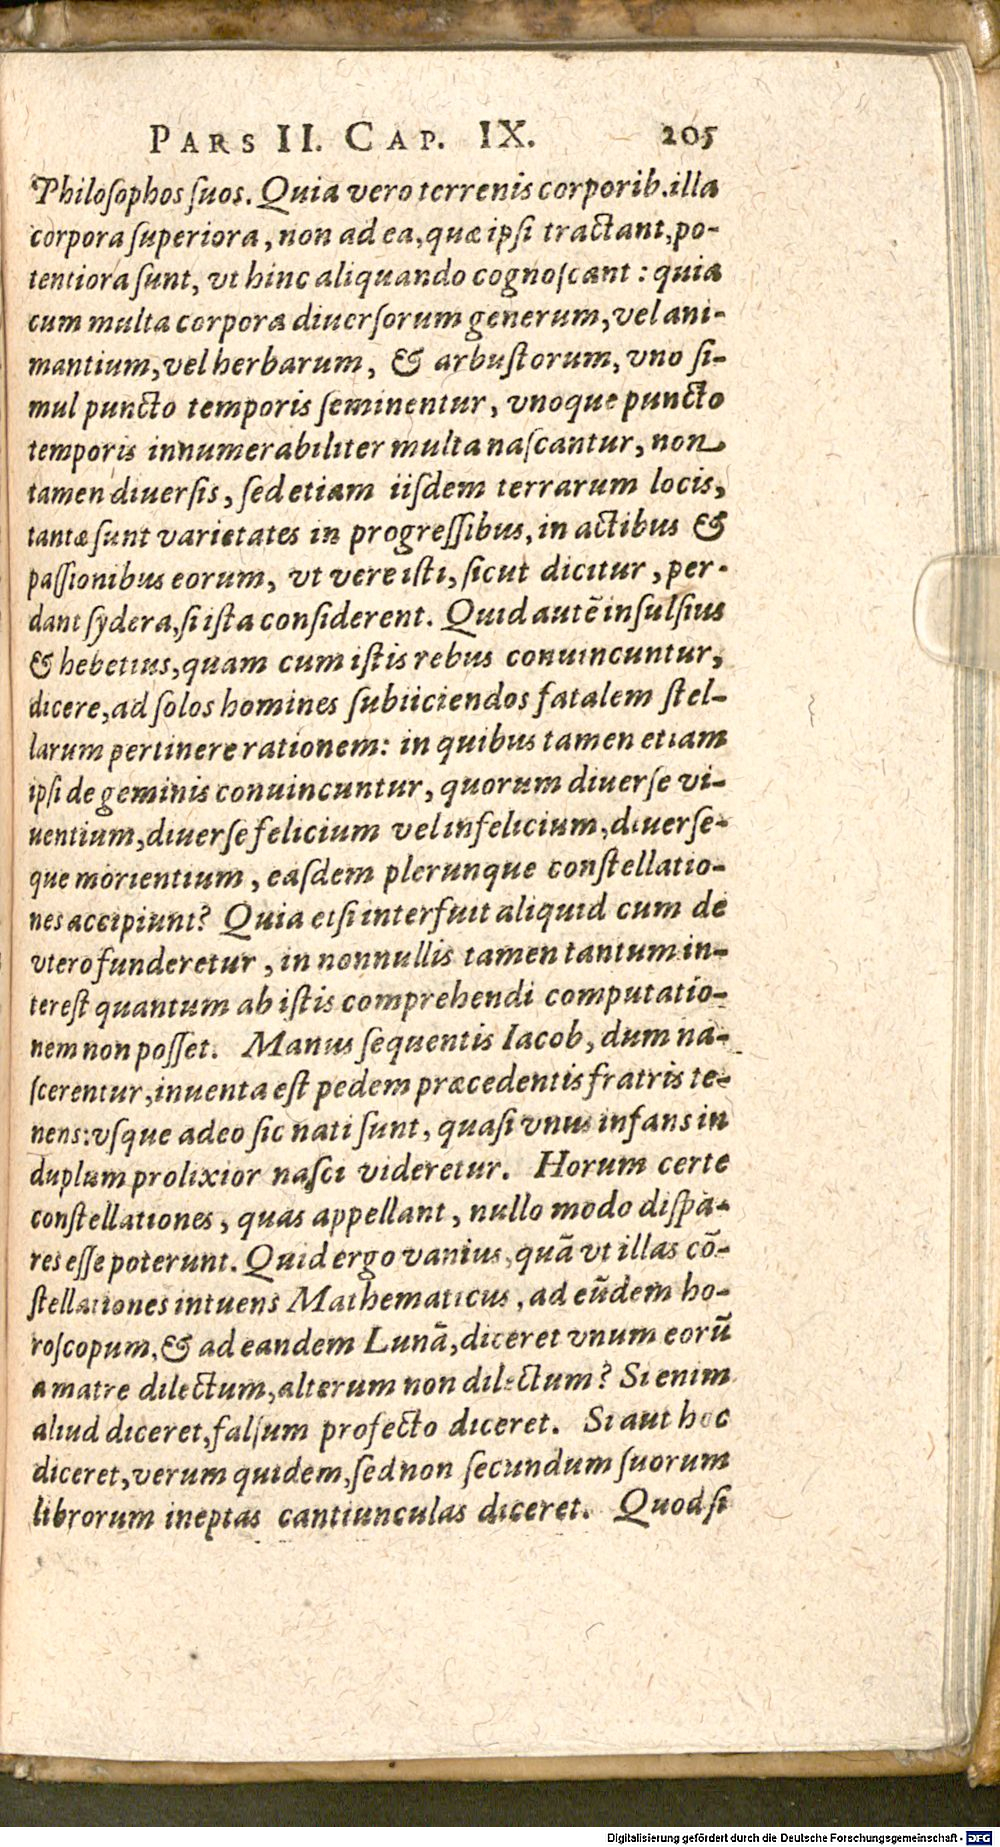 PARS II. CAP. IX. 205
Philoſophos ſuos. Quia vero terrenis corporib. illa
corpora ſuperiora, non ad ea, quæ ipſi tractant, po-
tentiora ſunt, vt hinc aliquando cognoſcant: quia
cum multa corpora diuerſorum generum, vel ani-
mantium, vel herbarum, & arbuſtorum, vno ſi-
mul puncto temporis ſeminentur, vnoque puncto
temporis innumerabiliter multa naſcantur, non
tamen diuerſis, ſed etiam iiſdem terrarum locis,
tantæ ſunt varietates in progreſſibus, in actibus &
paſſionibus eorum, vt vere iſti, ſicut dicitur, per-
dant ſydera, ſi iſta conſiderent. Quid autē inſulſius
& hebetius, quam cum iſtis rebus conuincuntur,
dicere, ad ſolos homines ſubiiciendos fatalem ſtel-
larum pertinere rationem: in quibus tamen etiam
ipſi de geminis conuincuntur, quorum diuerſe vi-
uentium, diuerſe felicium vel infelicium, diuerſe-
que morientium, eaſdem plerunque conſtellatio-
nes accipiunt? Quia etſi interfuit aliquid cum de
vtero funderetur, in nonnullis tamen tantum in-
tereſt quantum ab iſtis comprehendi computatio-
nem non poſſet. Manus ſequentis Iacob, dum na-
ſcerentur, inuenta eſt pedem præcedentis fratris te-
nens: vſque adeo ſic nati ſunt, quaſi vnus infans in
duplum prolixior naſci videretur. Horum certe
conſtellationes, quas appellant, nullo modo diſpa-
res eſſe poterunt. Quid ergo vanius, quā vt illas cō-
ſtellationes intuens Mathematicus, ad eūdem ho-
roſcopum, & ad eandem Lunā, diceret vnum eorū
a matre dilectum, alterum non dilectum? Si enim
aliud diceret, falſum profecto diceret. Si aut hoc
diceret, verum quidem, ſed non ſecundum ſuorum
librorum ineptas cantiunculas diceret. Quod ſi
Digitalisierung gefördert durch die Deutsche Forschungsgemeinschaft - DFG